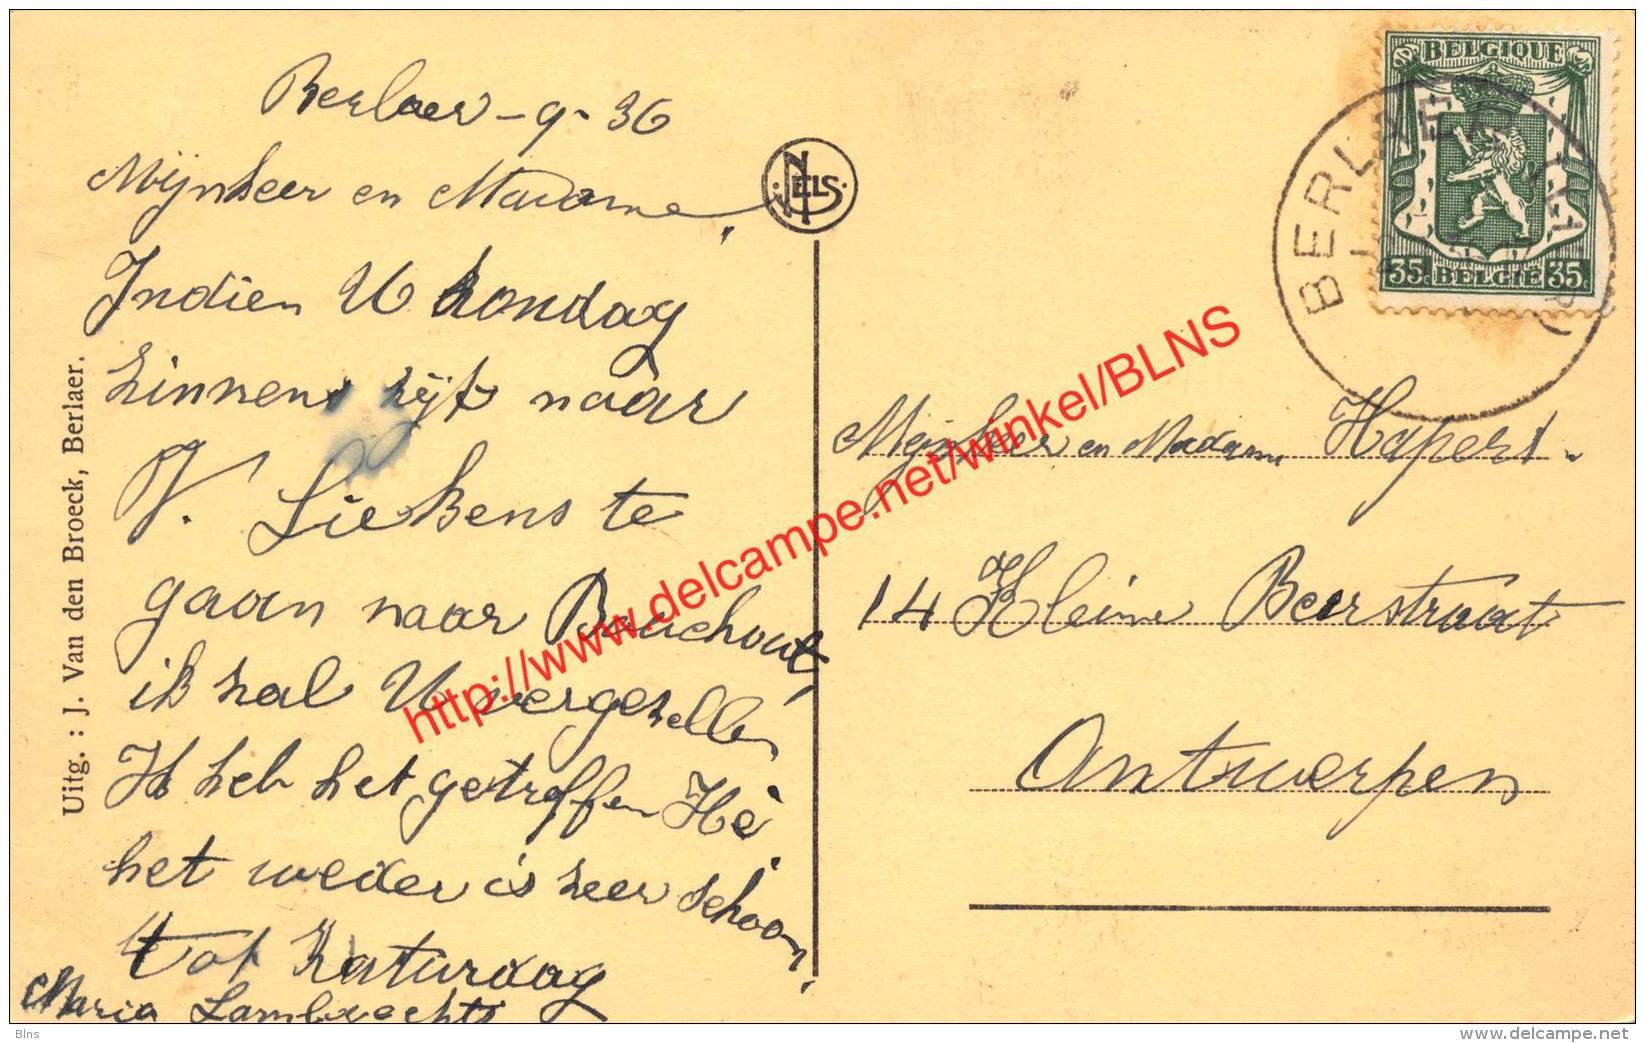 Berlaer - 9 - 36
Mijnheer en Madame,
Indien U zondag
zinnens zijt naar
V. Liekens te
gaan naar Bouchout,
ik zal U vergezellen
Ik heb het getroffen Hé
het weder is zeer schoon.
tot zaturdag
Maria Lambrechts
Uitg. : J. Van den Broeck, Berlaer.
NELS
BELGIQUE
35c BELGIE 35c
BERLAER
Mijnheer en Madame Hapers
14 Kleine Beerstraat
Antwerpen
http://www.delcampe.net/winkel/BLNS
Blns
www.delcampe.net